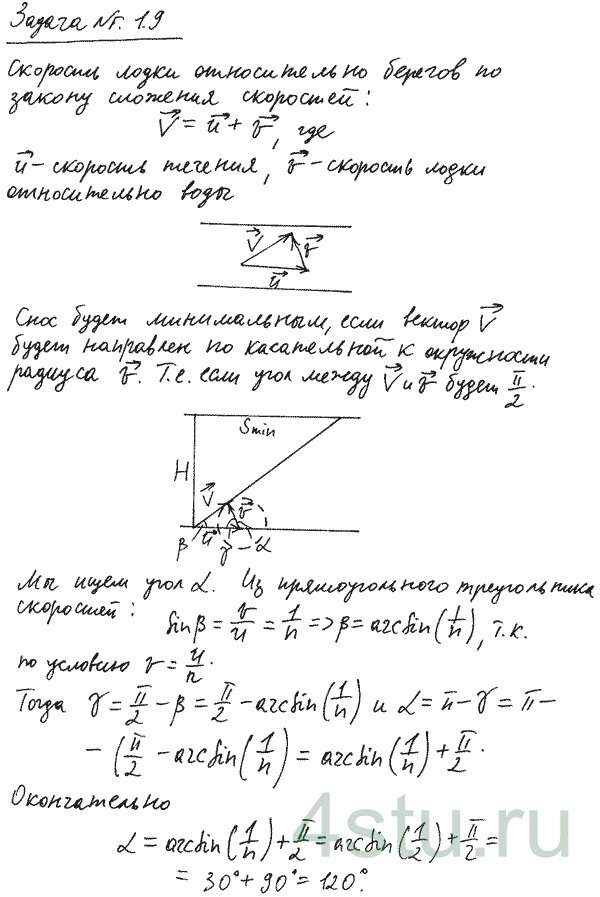 Задача №. 1.9
Скорость лодки относительно берегов по
закону сложения скоростей:
V⃗ = u⃗ + v⃗, где
u⃗ - скорость течения, v⃗ - скорость лодки
относительно воды
V⃗ v⃗
u⃗
Снос будет минимальным, если вектор V⃗
будет направлен по касательной к окружности
радиуса v⃗. Т.е. если угол между V⃗ и v⃗ будет π/2.
Smin
H
V⃗ v⃗
β u⃗ γ α
Мы ищем угол α. Из прямоугольного треугольника
скоростей: sinβ = v/u = 1/n => β = arcsin(1/n), т.к.
по условию v = u/n.
Тогда γ = π/2 - β = π/2 - arcsin(1/n) и α = π - γ = π -
- (π/2 - arcsin(1/n) = arcsin(1/n) + π/2.
Окончательно
α = arcsin(1/n) + π/2 = arcsin(1/2) + π/2 =
= 30° + 90° = 120°.
4stu.ru